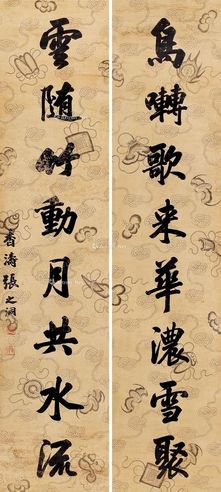 鳥囀歌来華濃雪聚
雲随竹動月共水流
香濤張之洞